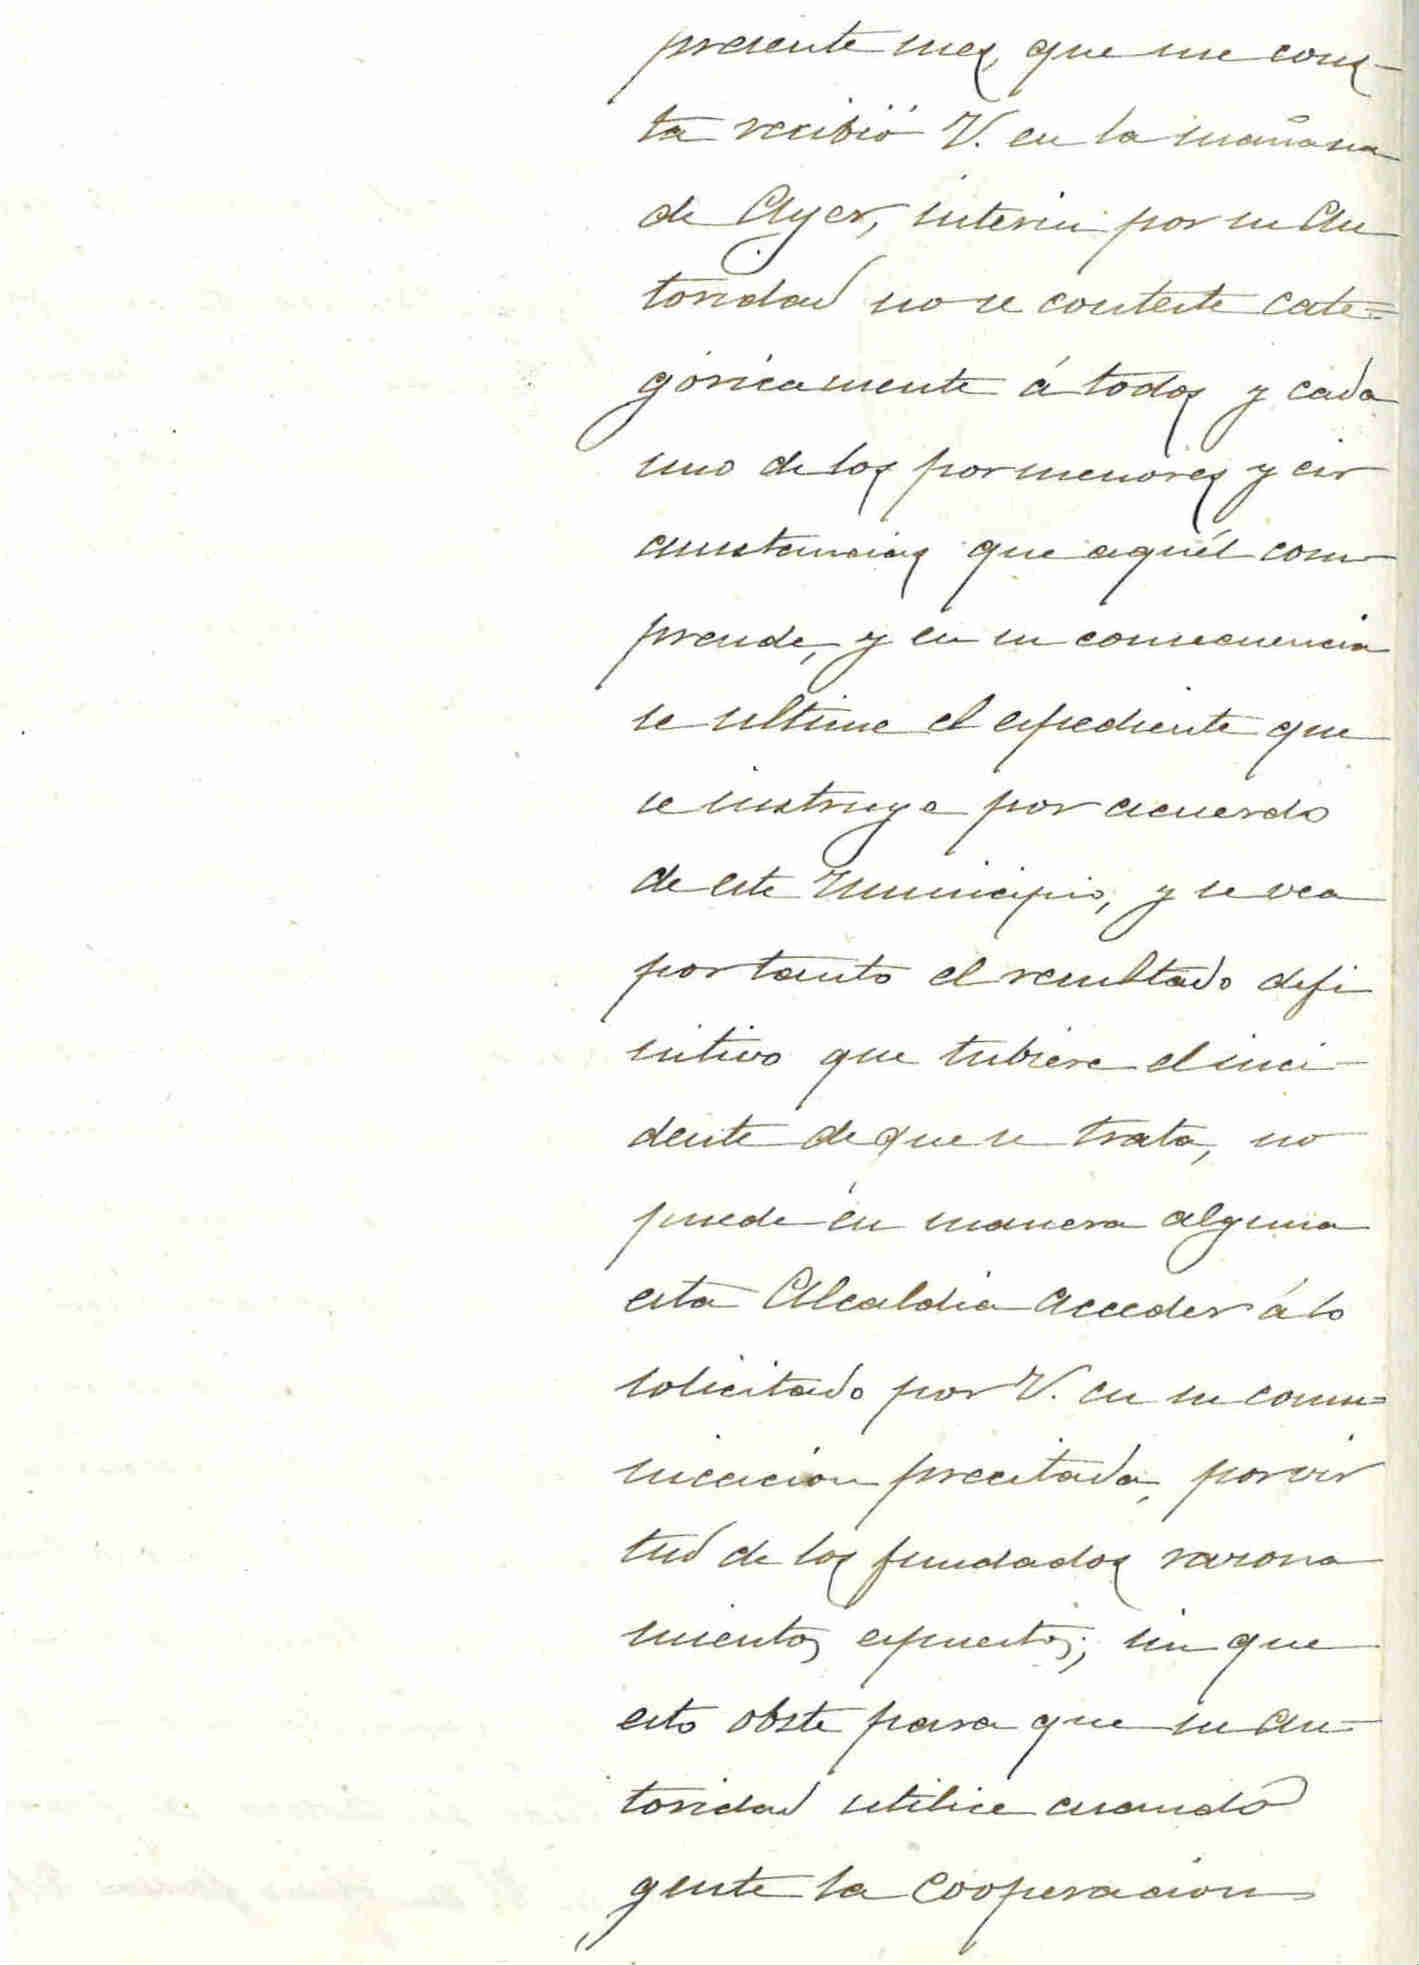 presente mes, que me cons-
ta recibió V. en la mañana
de Ayer, interin por su Au
toridad no se conteste cate=
góricamente á todos y cada
uno de los pormenores y cir
cunstancias que aquél com-
prende, y en su consecuencia
se ultime el espediente que
se instruye por acuerdo
de este Municipio, y se vea
por tanto el resultado defi
nitivo que tubiere el inci-
dente de que se trata, no
puede en manera alguna
esta Alcaldia acceder á lo
solicitado por V. en su comu=
nicacion precitada, por vir
tud de los fundados razona
mientos espuestos; sin que
esto obste para que su Au-
toridad utilice cuando
gente la cooperacion